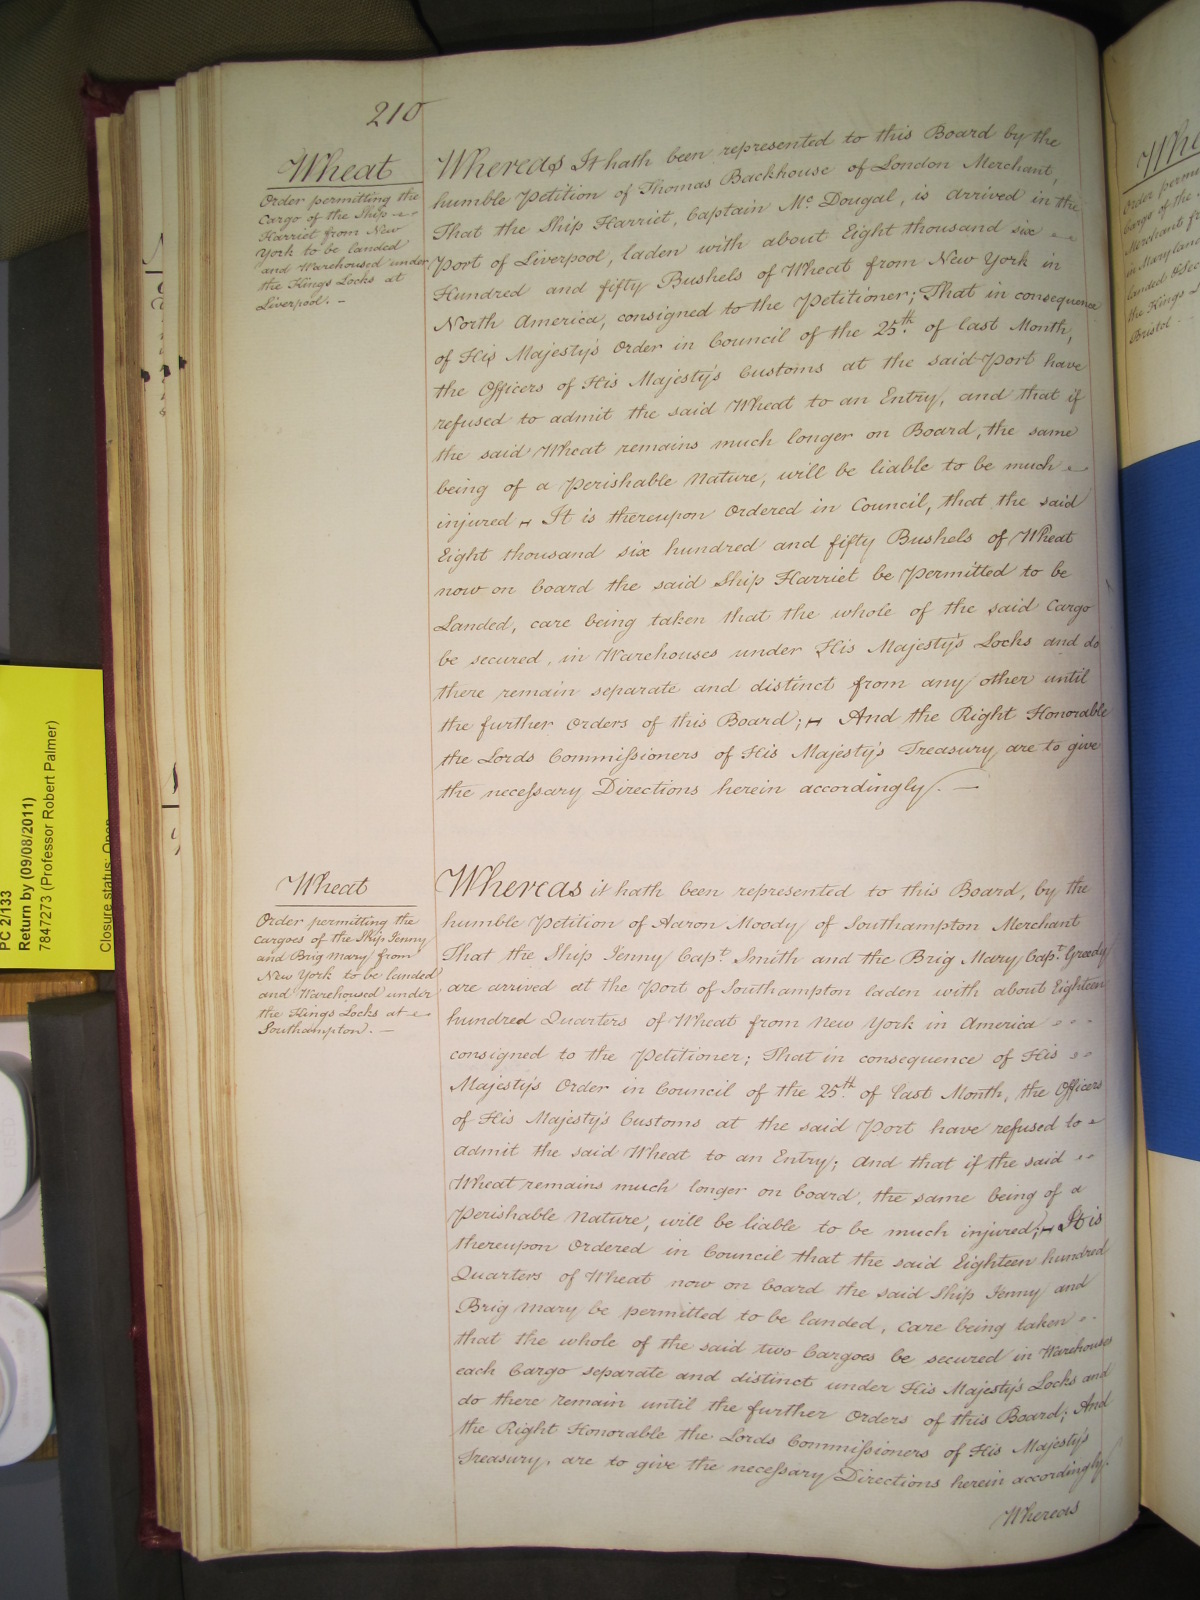 210
Wheat
Order permitting the
Cargo of the Ship
Harriet from New
York to be landed
and Warehoused under
the Kings Locks at
Liverpool. —
Whereas It hath been represented to this Board by the
humble Petition of Thomas Backhouse of London Merchant,
That the Ship Harriet, Captain Mc. Dougal, is arrived in the
Port of Liverpool, laden with about Eight thousand six
Hundred and fifty Bushels of Wheat from New York in
North America, consigned to the Petitioner; That in consequence
of His Majesty's Order in Council of the 25th. of last Month,
the Officers of His Majesty's Customs at the said Port have
refused to admit the said Wheat to an Entry, and that if
the said Wheat remains much longer on Board, the same
being of a Perishable Nature, will be liable to be much
injured It is thereupon Ordered in Council, that the said
Eight thousand six hundred and fifty Bushels of Wheat
now on board the said Ship Harriet be Permitted to be
Landed, care being taken that the whole of the said Cargo
be secured, in Warehouses under His Majesty's Locks and do
there remain separate and distinct from any other until
the further Orders of this Board; And the Right Honorable
the Lords Commissioners of His Majesty's Treasury, are to give
the necessary Directions herein accordingly. —
Wheat
Order permitting the
cargoes of the Ship Jenny
and Brig Mary from
New York to be landed
and Warehoused under
the Kings Locks at
Southampton. —
Whereas it hath been represented to this Board, by the
humble Petition of Aaron Moody of Southampton Merchant
That the Ship Jenny Capt. Smith and the Brig Mary Capt. Greedy
are arrived at the Port of Southampton laden with about Eighteen
hundred Quarters of Wheat from New York in America
consigned to the Petitioner; That in consequence of His
Majesty's Order in Council of the 25th. of last Month, the Officers
of His Majesty's Customs at the said Port have refused to
admit the said Wheat to an Entry; and that if the said
Wheat remains much longer on board, the same being of a
Perishable Nature, will be liable to be much injured; It is
thereupon Ordered in Council that the said Eighteen hundred
Quarters of Wheat now on board the said Ship Jenny and
Brig Mary be permitted to be landed, care being taken
that the whole of the said two Cargoes be secured in Warehouses
each Cargo separate and distinct under His Majesty's Locks and
do there remain until the further Orders of this Board; And
the Right Honorable the Lords Commissioners of His Majesty's
Treasury, are to give the necessary Directions herein accordingly.
Whereas
PC 2/133
Return by (09/08/2011)
7847273 (Professor Robert Palmer)
Closure status: Open
Whe
Order perm
Cargo of the
Merchant fr
in Maryland
landed & Sec
the Kings L
Bristol